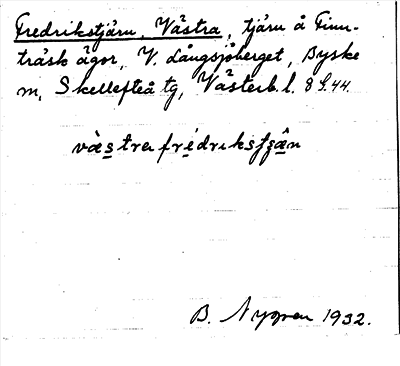 Fredrikstjärn, Västra, tjärn å Finn-
träsk ägor, V. Långsjöberget, Byske
m, Skellefteå tg, Västerb. l. 8 S.44.
västra frédrikstʃæ̂n
B. Nygren 1932.